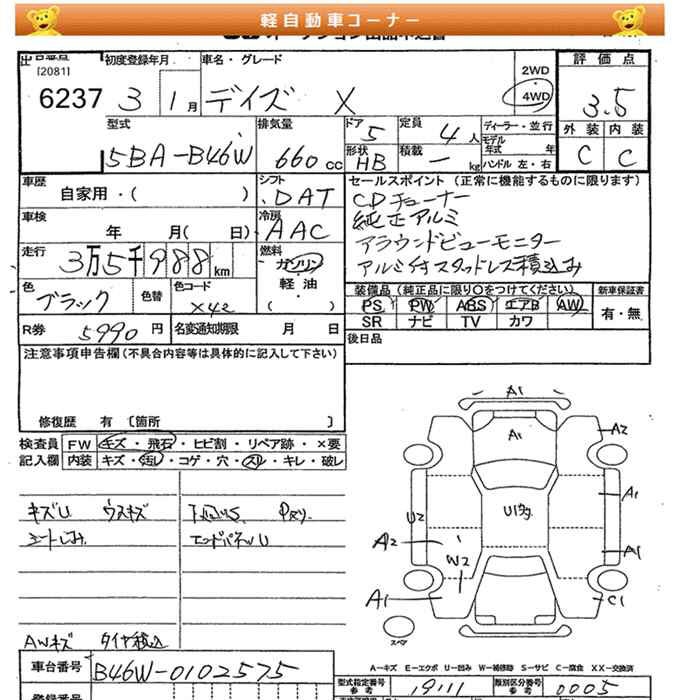 軽自動車コーナー
[2081]
初度登録年月
車名・グレード
2WD
4WD
評価点
6237
3
1月
デイズ X
3.5
型式
排気量
ドア
定員
ディーラー・並行
外装
内装
5BA-B46W
660cc
5
4人
モデル年式 年
C
C
形状
積載
HB
ー kg
ハンドル 左・右
車歴
シフト
セールスポイント (正常に機能するものに限ります)
自家用・( )
DAT
CDチューナー
車検
冷房
純正アルミ
年 月( 日)
AAC
アラウンドビューモニター
走行
燃料
3万5千988km
ガソリン
アルミ付スタッドレス積込み
色
色替
色コード
軽油
装備品 (純正品に限り○をつけてください)
新車保証書
ブラック
X42
・( )
PS PW ABS エアB AW
有・無
R券
5990円
名変通知期限 月 日
SR ナビ TV カワ
後日品
注意事項申告欄(不具合内容等は具体的に記入して下さい)
修復歴 有 〔箇所 〕
検査員
FW
キズ・飛石・ヒビ割・リペア跡・×要
記入欄
内装
キズ・汚れ・コゲ・穴・スレ・キレ・破レ
A1
A1
A2
キズU ウスキズ
A1
U2
A2
エンドパネルU
W2
A1
A1
C1
スペア
AWキズ タイヤ積込
A-キズ E-エクボ U-凹み W-補修跡 S-サビ C-腐食 XX-交換済
車台番号
B46W-0102575
型式指定番号
参考
19111
類別区分番号
参考
0005
登録番号